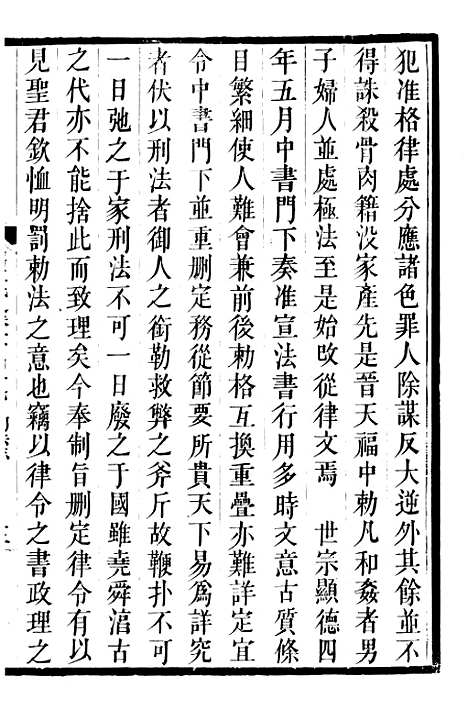 犯准格律處分應諸色罪人除謀反大逆外其餘並不
得誅殺骨肉籍沒家產先是晉天福中勅凡和姦者男
子婦人並處極法至是始改從律文焉　世宗顯德四
年五月中書門下奏准宣法書行用多時文意古質條
目繁細使人難會兼前後勅格互換重疊亦難詳定宜
令中書門下並重删定務從節要所貴天下易爲詳究
者伏以刑法者御人之銜勒救弊之斧斤故鞭扑不可
一日弛之于家刑法不可一日廢之于國雖堯舜淳古
之代亦不能捨此而致理矣今奉制旨删定律令有以
見聖君欽恤明罰勅法之意也竊以律令之書政理之